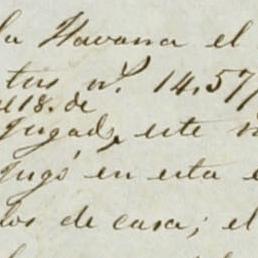 la Havana el
nº 14,57
el 18. de
Jugado, este
Jugó en esta
los de casa; el